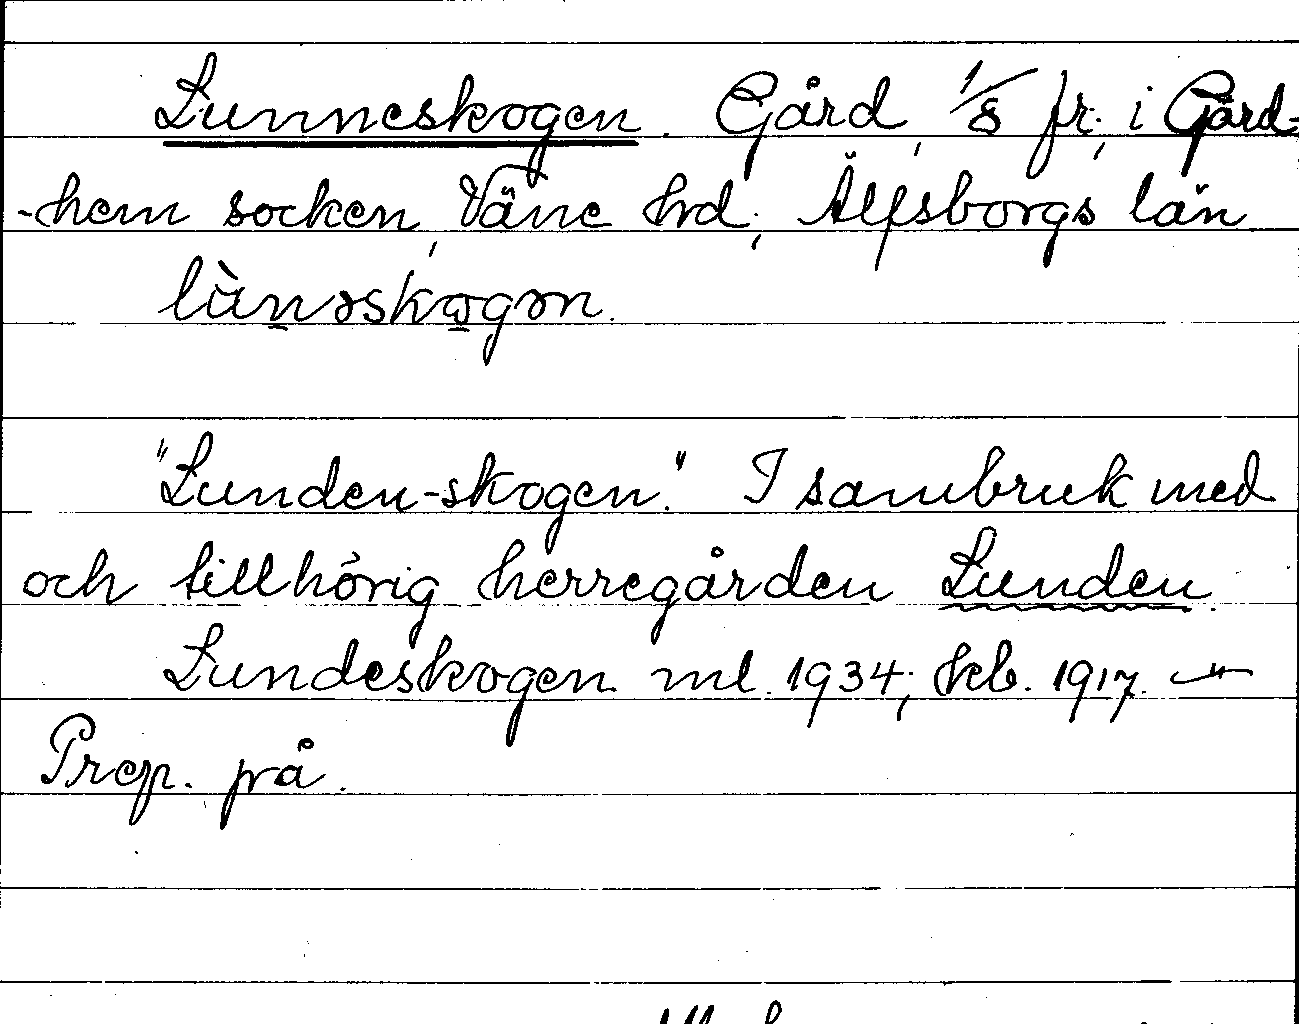 Lunneskogen. Gård, 1/8 fr., i Gärd-
-hem socken, Väne hrd, Älfsborgs län
lùnəskogən.
"Lunden-skogen." I sambruk med
och tillhörig herregården Lunden.
Lundeskogen ml. 1934; Jeb. 1917. –"–
Prep. på.